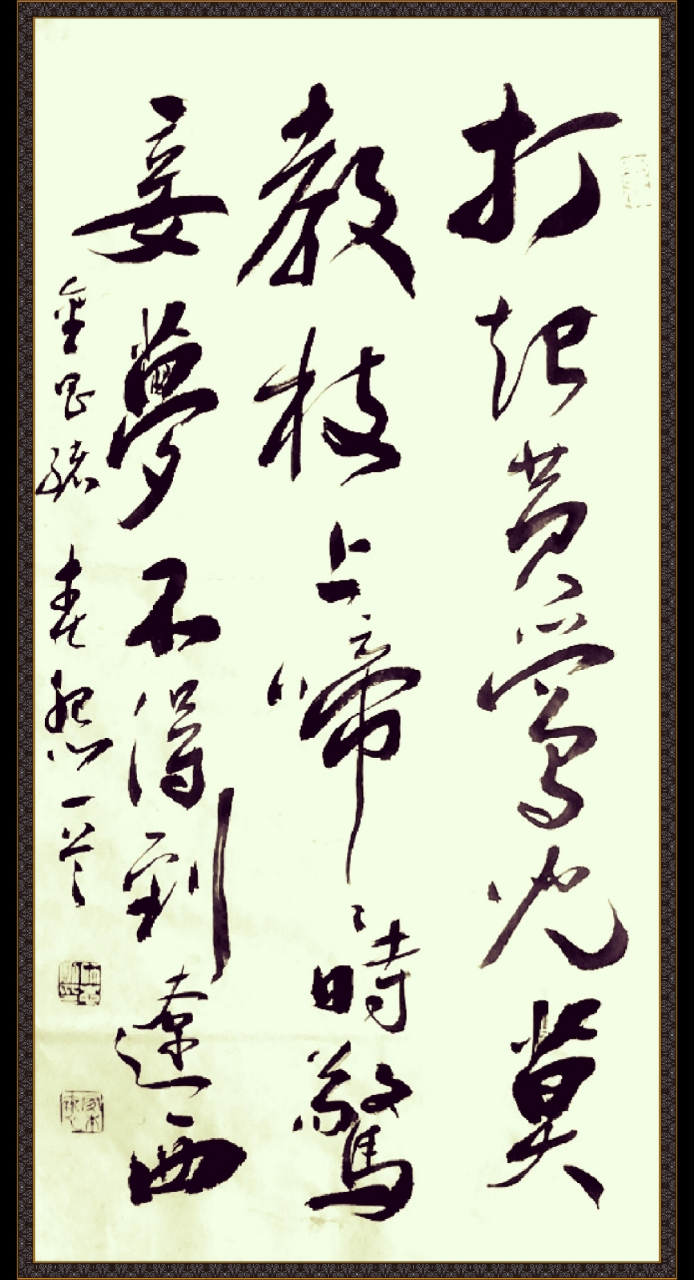 打起黄鶯兒莫
教枝上啼々時驚
妾夢不得到遼西
金昌緒 春怨一首